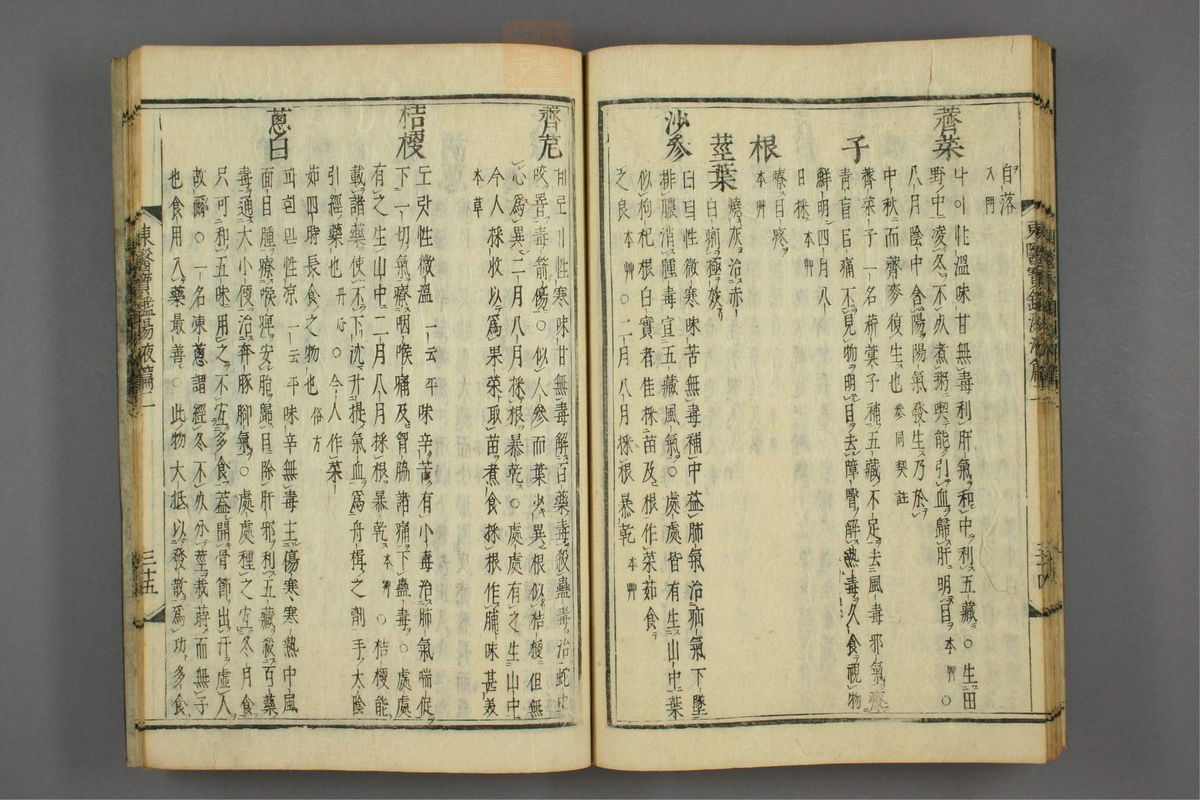 自落
入門
薺菜
나이性溫味甘無毒利肝氣和中利五藏○生田
野中凌冬不死煮粥喫能引血歸肝明目本艸○
八月陰中含陽陽氣發生乃於
中秋而薺麥復生也參同契註
子
薺菜子一名菥蓂子補五藏不足去風毒邪氣療
靑盲目痛不見物明目去障瞖解熱毒久食視物
鮮明四月八
日採本艸
根
療目疼
本艸
莖葉
燒灰治赤
白痢極效
沙參
더덕性微寒味苦無毒補中益肺氣治疝氣下墜
排膿消腫毒宣五藏風氣○處處皆有生山中葉
似枸杞根白實者佳採苗及根作菜茹食
之良本艸○二月八月採根暴乾
薺苨
계로기性寒味甘無毒解百藥毒殺蠱毒治蛇虫
咬署毒箭傷○似人參而葉少異根似桔梗但無
心爲異二月八月採根暴乾○處處有之生山中
今人採收以爲果菜取苗煮食採根作脯味甚美
本草
桔梗
도랏性微溫一云平味辛苦有小毒治肺氣喘促
下一切氣療咽喉痛及胷脇諸痛下蠱毒○處處
有之生山中二月八月採根暴乾本艸○桔梗能
載諸藥使不下沈升提氣血爲舟楫之劑手太陰
引經藥也丹心○今人作菜
茹四時長食之物也俗方
蔥白
파흰믿性凉一云平味辛無毒主傷寒寒熱中風
面目腫療喉痺安胎歸目除肝邪利五藏殺百藥
毒通大小便治奔豚脚氣○處處種之宜冬月食
只可和五味用之不宜多食蓋開骨節出汗虛人
故爾○一名凍蔥謂經冬不死分莖栽蒔而無子
也食用入藥最善○此物大抵以發散爲功多食
東醫寶鑑湯液篇二
三十四
東醫寶鑑湯液篇二
三十五